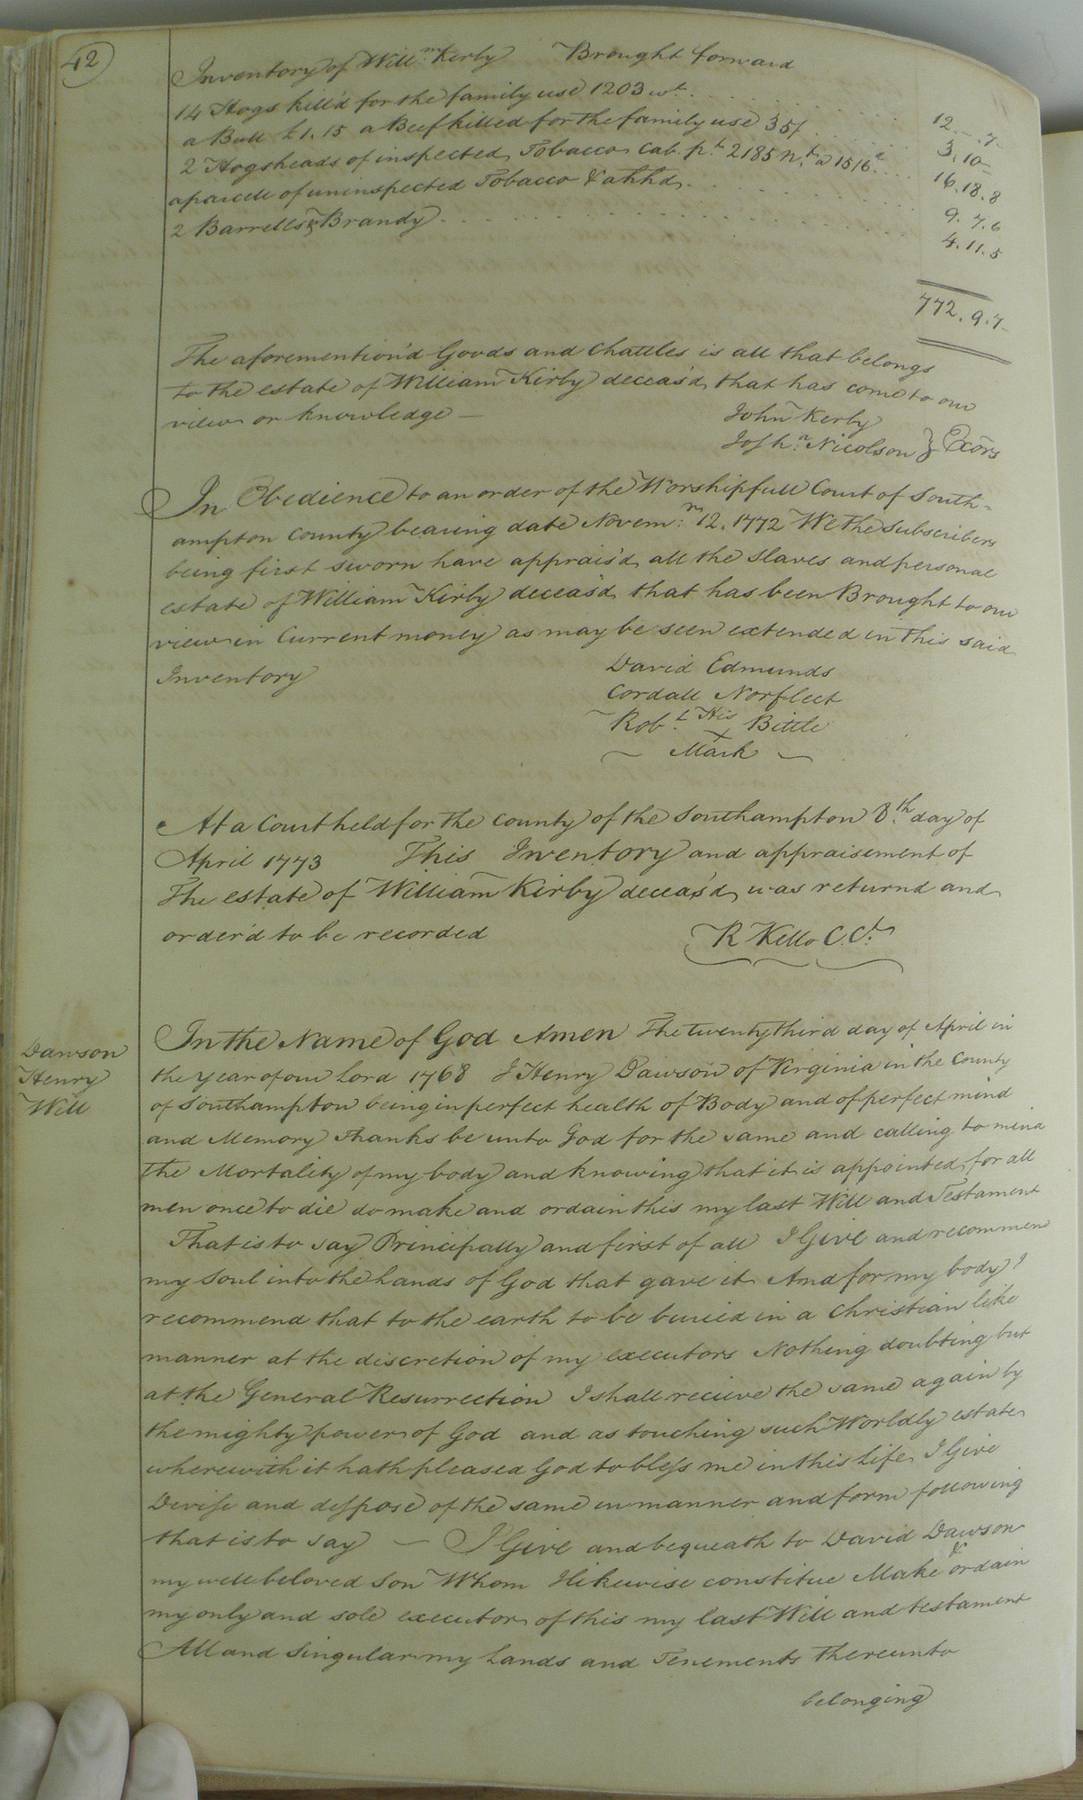 42
Inventory of Willm. Kirby Brought forward
14 Hogs kill'd for the family use 1203 wt. 12. - . 7
a Bull £1.15 a Beef killed for the family use 35/ 3.10 -
2 Hogsheads of inspected Tobacco Cab. pt. 2185 Nt. a 15/6d. 16.18.8
a parcell of uninspected Tobacco & a hhd. 9.7.6
2 Barrells & Brandy 4.11.5
772.9.7
The aforemention'd Goods and Chattles is all that belongs
to the estate of William Kirby deceas'd, that has come to our
view or knowledge —
John Kerby
Joshn. Nicolson } Exors
In Obedience to an order of the Worshipfull Court of South=
ampton County bearing date Novemr. 12. 1772 We the Subscribers
being first sworn have apprais'd all the Slaves and personal
estate of William Kirby deceas'd, that has been Brought to our
view in Current money as may be seen extended in this said
Inventory
David Edmunds
Cordall Norfleet
Robt. His Bittle
X
Mark
At a Court held for the County of the Southampton 8th. day of
April 1773 This Inventory and appraisement of
The estate of William Kirby deceas'd, was returnd and
order'd to be recorded
R Kello C.Ct.
Dawson
Henry
Will
In the Name of God Amen The twenty third day of April in
the Year of our Lord 1768 I Henry Dawson of Virginia in the County
of Southampton being in perfect health of Body and of perfect mind
and Memory Thanks be unto God for the same and calling to mind
the Mortality of my body and knowing that it is appointed for all
men once to die do make and ordain this my last Will and Testament
That is to say Principally and first of all I Give and recommen
my Soul into the hands of God that gave it And for my body I
recommend that to the earth to be buried in a Christian like
manner at the discretion of my executors Nothing doubting but
at the General Resurrection I shall recieve the same again by
the mighty power of God and as touching such Worldly estate
wherewith it hath pleased God to bless me in this Life I Give
Devise and dispose of the same in manner and form following
that is to say — I Give and bequeath to David Dawson
my well beloved Son Whom I likewise constitue Make & ordain
my only and sole executor of this my last Will and testament
All and Singular my Lands and Tenements thereunto
belonging